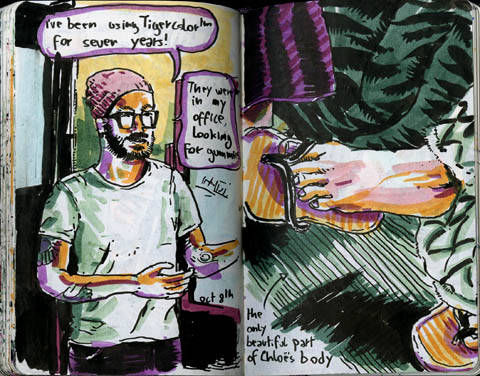 i've been using Tigercolor™
for seven years!
They were
in my
office,
looking
for gummies
oct 9th
the
only
beautiful part
of Chloë's body